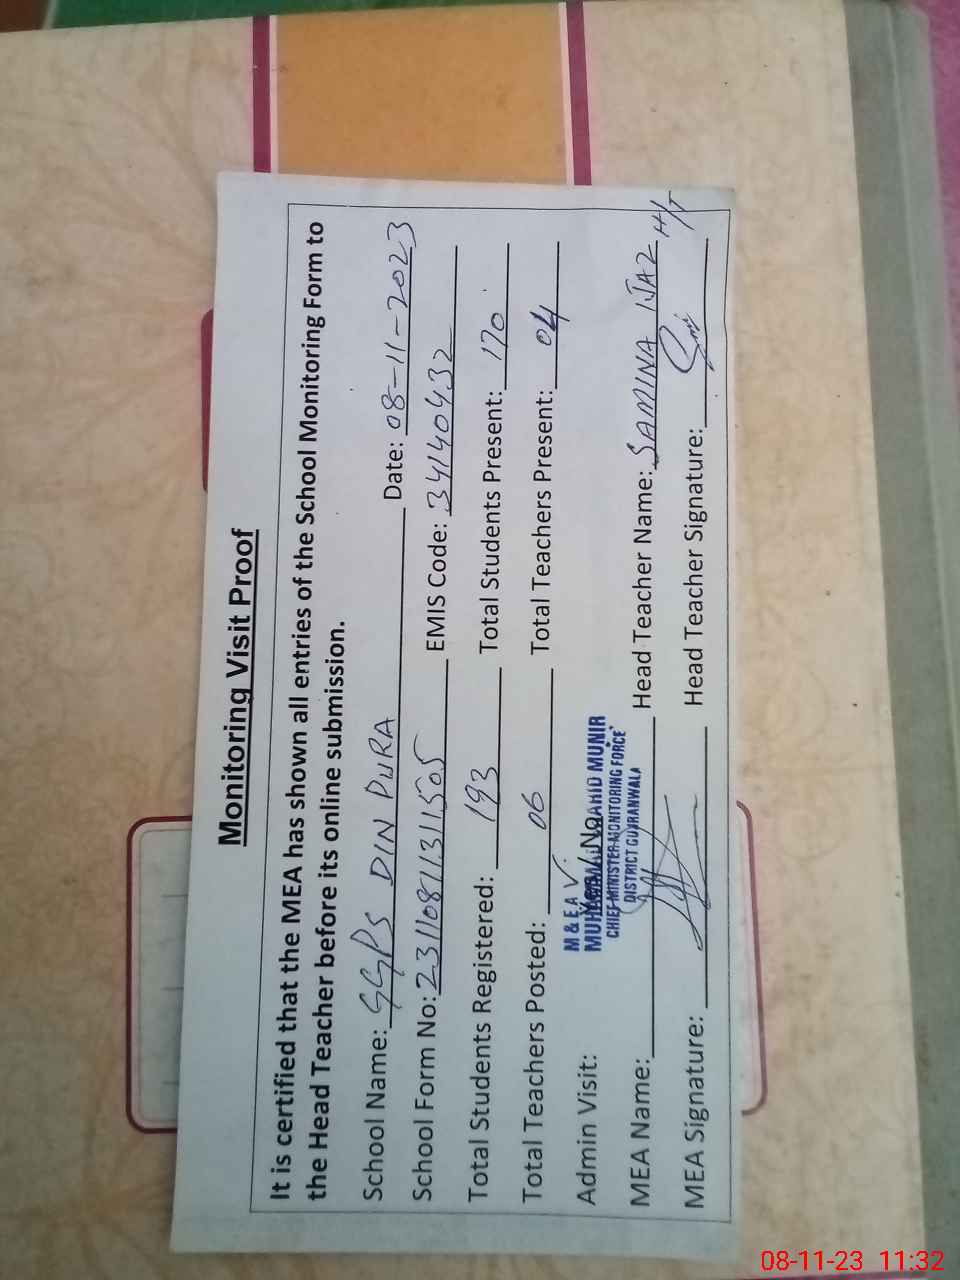 Monitoring Visit Proof
It is certified that the MEA has shown all entries of the School Monitoring Form to
the Head Teacher before its online submission.
School Name: GGPS DIN PURA Date: 08-11-2023
School Form No: 231108113111505 EMIS Code: 34140432
Total Students Registered: 193 Total Students Present: 170
Total Teachers Posted: 06 Total Teachers Present: 04
M & E A
Admin Visit: Yes/No
MUHAMMAD WAHID MUNIR
CHIEF MINISTER MONITORING FORCE
DISTRICT GUJRANWALA
MEA Name: Head Teacher Name: SAMINA IJAZ H/T
MEA Signature: Head Teacher Signature:
08-11-23 11:32